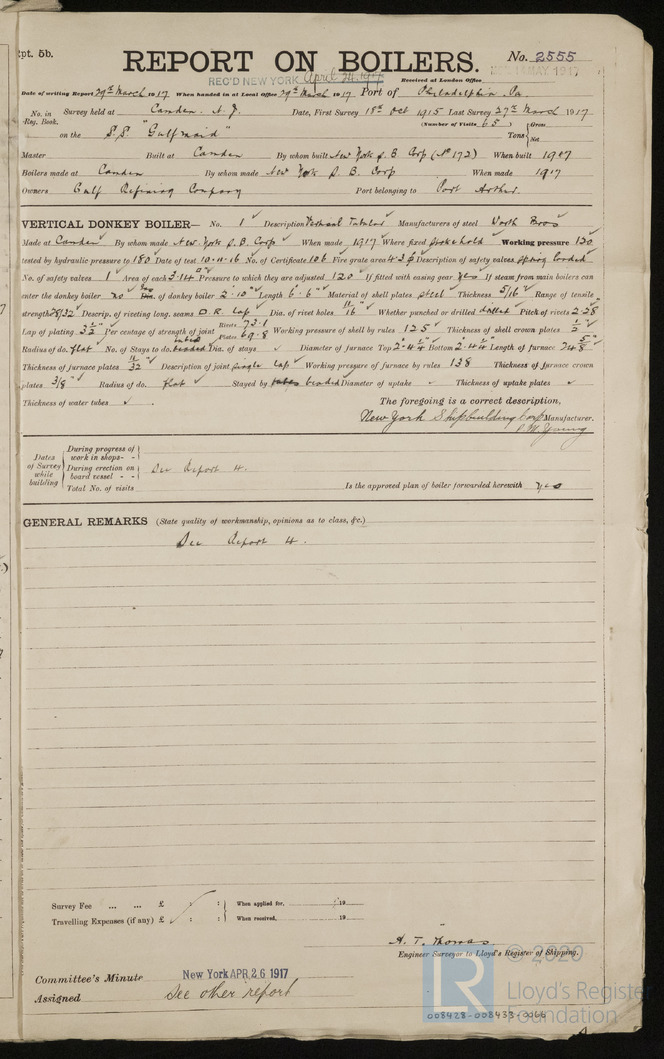 Rpt. 5b.
REPORT ON BOILERS.
No. 2555
REC'D NEW YORK April 24 1917
Received at London Office MAY 1917
Date of writing Report 29th March 1917 When handed in at Local Office 29th March 1917 Port of Philadelphia Pa.
No. in Reg. Book. Survey held at Camden. N. J. Date, First Survey 18th Oct 1915 Last Survey 27th March 1917
(Number of Visits 65)
on the S.S. "Gulfmaid" Tons { Gross Net
Master Built at Camden By whom built New York S. B. Corp (No 172) When built 1917
Boilers made at Camden By whom made New York S. B. Corp When made 1917
Owners Gulf Refining Company Port belonging to Port Arthur.
VERTICAL DONKEY BOILER— No. 1 Description Vertical Tubular Manufacturers of steel Worth Bros
Made at Camden By whom made New York S. B. Corp When made 1917 Where fixed Stokehold Working pressure 120
tested by hydraulic pressure to 180 Date of test 10.11.16 No. of Certificate 106 Fire grate area Description of safety valves spring loaded
No. of safety valves 1 Area of each 3.14 Pressure to which they are adjusted 120 If fitted with easing gear yes If steam from main boilers can
enter the donkey boiler no Dia. of donkey boiler 2'.10" Length 6'.6" Material of shell plates steel Thickness 5/16" Range of tensile
strength 28/32 Descrip. of riveting long. seams D.R. Lap Dia. of rivet holes Whether punched or drilled drilled Pitch of rivets 2.28
Lap of plating 3 1/2" Per centage of strength of joint Rivets 73.1 Plates 69.8 Working pressure of shell by rules 125 Thickness of shell crown plates 1/2"
Radius of do. flat No. of Stays to do. tubes beaded Dia. of stays Diameter of furnace Top 2'.4 1/4" Bottom 2'.4 1/4" Length of furnace
Thickness of furnace plates 11/32" Description of joint single lap Working pressure of furnace by rules 138 Thickness of furnace crown
plates 3/8" Radius of do. flat Stayed by tubes beaded Diameter of uptake Thickness of uptake plates
Thickness of water tubes
The foregoing is a correct description,
New York Shipbuilding Corp Manufacturer.
P. M. Young
Dates of Survey while building
During progress of work in shops - -
During erection on board vessel - -
Total No. of visits
See Report 4.
Is the approved plan of boiler forwarded herewith yes
GENERAL REMARKS (State quality of workmanship, opinions as to class, &c.)
See Report 4.
Survey Fee ... ... £ : : When applied for, 19
Travelling Expenses (if any) £ : : When received, 19
A. T. Thomas
Engineer Surveyor to Lloyd's Register of Shipping.
Committee's Minute New York APR. 26 1917
Assigned See other report
© 2020
Lloyd's Register
Foundation
008428-008433-0066